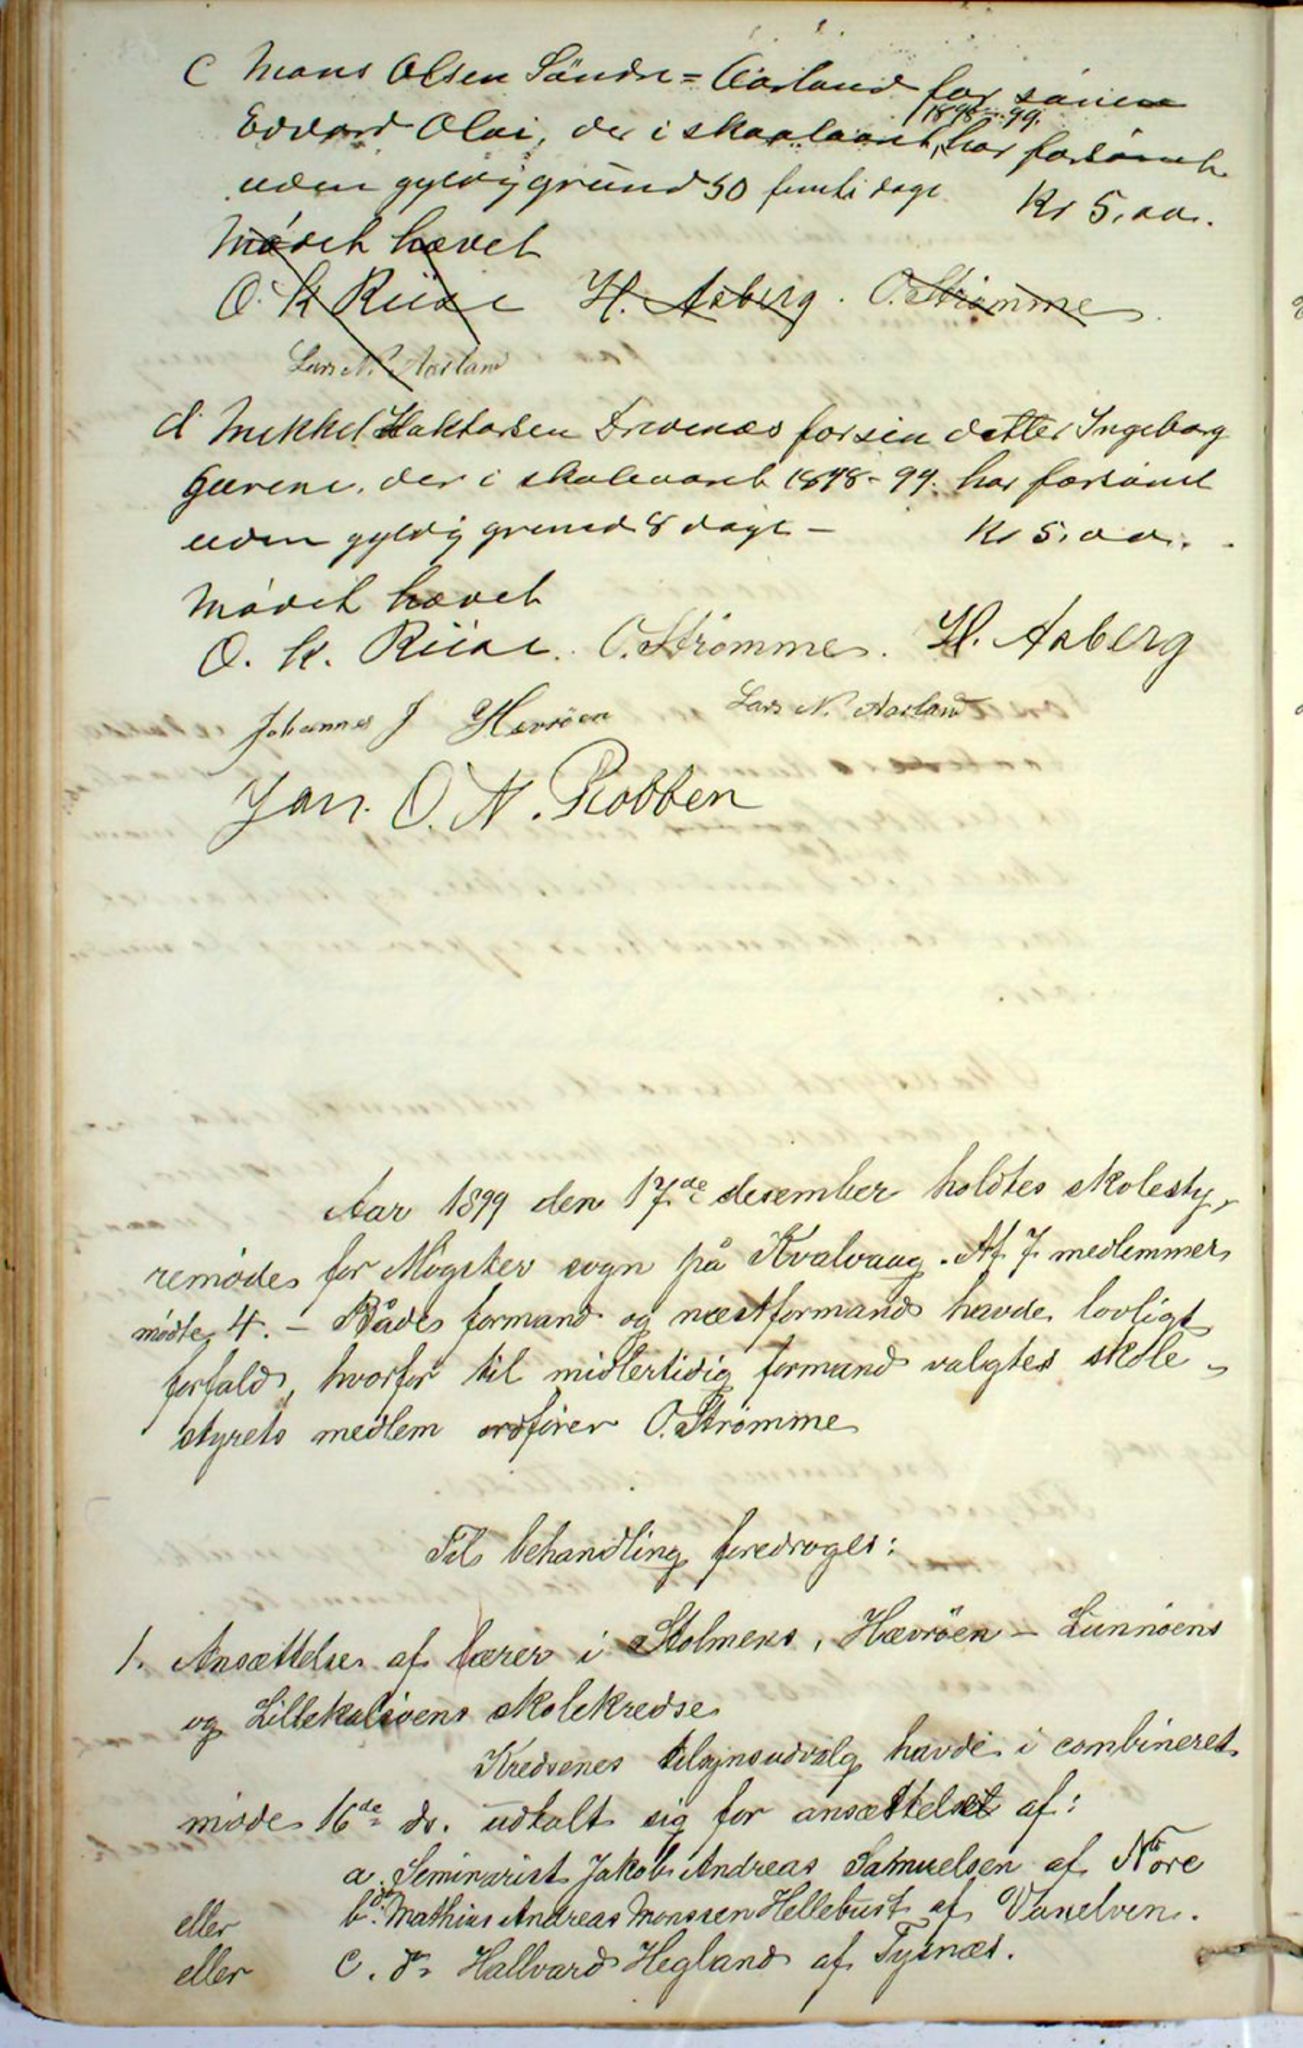 c Mons Olsen Söndre = Aarland for sønen
1898-99.
Edvard Olai, der i skoleaaret, har forsömt
uden gyldig grund 50 femti dage Kr 5,00.
Mödet hævet
O. K. Riise H. Asberg. O. Strömme
Lars N. Aarland
d Mikkel Haktorsen Drevenæs for sin datter Ingeborg
Gurine, der i skoleaaret 1898-99. har forsömt
uden gyldig grund 8 dage — Kr 5,00.
Mödet hævet
O. K. Riise. O. Strömme. H. Asberg
Johannes J Hevröen Lars N. Aarland
Jon. O. N. Robben
Aar 1899 den 17de desember holdtes skolesty-
remöde for Mögster sogn på Kvalvaag. Af 7 medlemmer
mödte 4. — Både formand og næstformand havde lovligt
forfald, hvorfor til midlertidig formand valgtes skole-
styrets medlem ordförer O. Strömme
Til behandling foredroges:
1. Ansættelse af lærer i Stolmens, Hævröen — Lunnöens
og Lillekalsöens skolekredse
Kredsenes tilsynsudvalg havde i combineret
möde 16de ds. udtalt sig for ansættelse af:
a. Seminarist Jakob Andreas Samuelsen af Nöre
eller b. do Mathias Andreas Monssen Hellebust af Vanelven.
eller c. do Hallvard Hegland af Tysnæs.